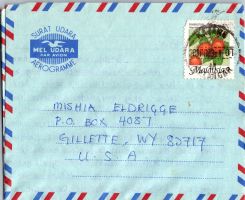 SURAT UDARA
MEL UDARA
PAR AVION
AEROGRAMME
Malaysia
MISHIA ELDRIGGE
P.O. BOX 4087
GILLETTE, WY 82717
U.S.A